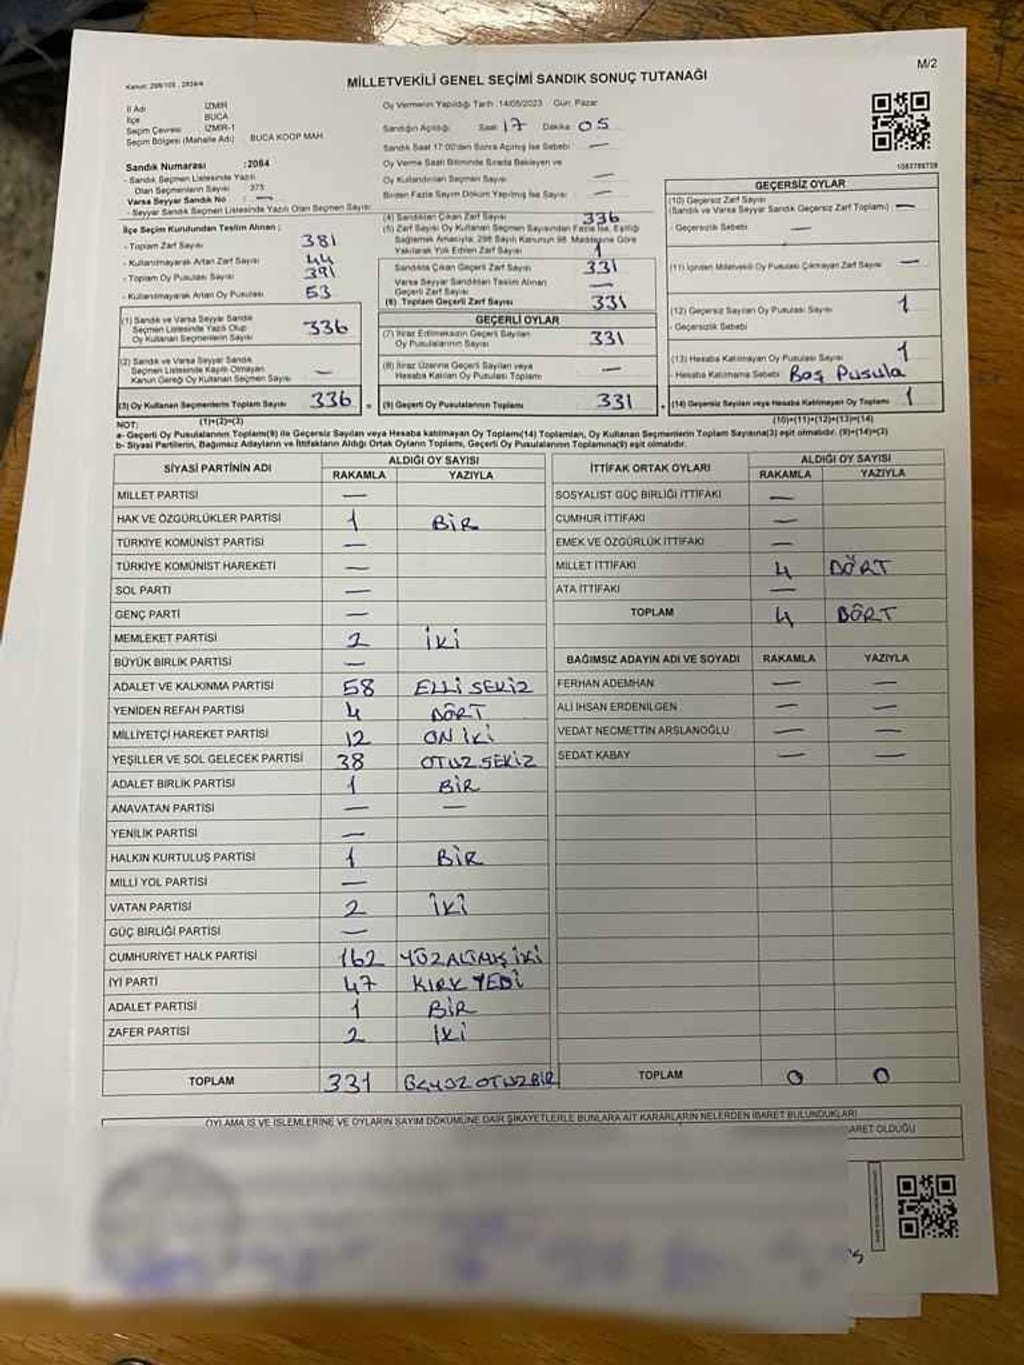 M/2
Kanun: 298/105 , 2839/4
MİLLETVEKİLİ GENEL SEÇİMİ SANDIK SONUÇ TUTANAĞI
İl Adı İZMİR
İlçe BUCA
Seçim Çevresi İZMİR-1
Seçim Bölgesi (Mahalle Adı) BUCA KOOP MAH
Oy Vermenin Yapıldığı Tarih :14/05/2023 Gün: Pazar
Sandığın Açıldığı Saat 17 Dakika 05
Sandık Saat 17:00'den Sonra Açılmış İse Sebebi —
Oy Verme Saati Bitiminde Sırada Bekleyen ve
Oy Kullandırılan Seçmen Sayısı —
Birden Fazla Sayım Döküm Yapılmış İse Sayısı —
Sandık Numarası :2084
- Sandık Seçmen Listesinde Yazılı
Olan Seçmenlerin Sayısı 373
Varsa Seyyar Sandık No —
- Seyyar Sandık Seçmen Listesinde Yazılı Olan Seçmen Sayısı
İlçe Seçim Kurulundan Teslim Alınan :
- Toplam Zarf Sayısı 381
- Kullanılmayarak Artan Zarf Sayısı 44
- Toplam Oy Pusulası Sayısı 391
- Kullanılmayarak Artan Oy Pusulası 53
(1) Sandık ve Varsa Seyyar Sandık
Seçmen Listesinde Yazılı Olup
Oy Kullanan Seçmen Sayısı 336
(2) Sandık ve Varsa Seyyar Sandık
Seçmen Listesinde Kayıtlı Olmayan
Kanun Gereği Oy Kullanan Seçmen Sayısı —
(3) Oy Kullanan Seçmenlerin Toplam Sayısı 336
(1)+(2)=(3)
(4) Sandıktan Çıkan Zarf Sayısı 336
(5) Zarf Sayısı Oy Kullanan Seçmen Sayısından Fazla İse, Eşitliği
Sağlamak Amacıyla, 298 Sayılı Kanunun 98. Maddesine Göre
Yakılarak Yok Edilen Zarf Sayısı 1
Sandıkta Çıkan Geçerli Zarf Sayısı 331
Varsa Seyyar Sandıktan Teslim Alınan
Geçerli Zarf Sayısı —
(6) Toplam Geçerli Zarf Sayısı 331
GEÇERLİ OYLAR
(7) İtiraz Edilmeksizin Geçerli Sayılan
Oy Pusulalarının Sayısı 331
(8) İtiraz Üzerine Geçerli Sayılan veya
Hesaba Katılan Oy Pusulası Toplamı —
= (9) Geçerli Oy Pusulalarının Toplamı 331
1083788738
GEÇERSİZ OYLAR
(10) Geçersiz Zarf Sayısı
(Sandık ve Varsa Seyyar Sandık Geçersiz Zarf Toplamı) —
- Geçersizlik Sebebi —
(11) İçinden Milletvekili Oy Pusulası Çıkmayan Zarf Sayısı —
(12) Geçersiz Sayılan Oy Pusulası Sayısı 1
- Geçersizlik Sebebi
(13) Hesaba Katılmayan Oy Pusulası Sayısı 1
- Hesaba Katılmama Sebebi Boş Pusula
+ (14) Geçersiz Sayılan veya Hesaba Katılmayan Oy Toplamı 1
(10)+(11)+(12)+(13)=(14)
NOT:
a- Geçerli Oy Pusulalarının Toplamı(9) ile Geçersiz Sayılan veya Hesaba katılmayan Oy Toplamı(14) Toplamları, Oy Kullanan Seçmenlerin Toplam Sayısına(3) eşit olmalıdır. (9)+(14)=(3)
b- Siyasi Partilerin, Bağımsız Adayların ve İttifakların Aldığı Ortak Oyların Toplamı, Geçerli Oy Pusulalarının Toplamına(9) eşit olmalıdır.
SİYASİ PARTİNİN ADI ALDIĞI OY SAYISI
RAKAMLA YAZIYLA
MİLLET PARTİSİ —
HAK VE ÖZGÜRLÜKLER PARTİSİ 1 BİR
TÜRKİYE KOMÜNİST PARTİSİ —
TÜRKİYE KOMÜNİST HAREKETİ —
SOL PARTİ —
GENÇ PARTİ —
MEMLEKET PARTİSİ 2 İKİ
BÜYÜK BİRLİK PARTİSİ —
ADALET VE KALKINMA PARTİSİ 58 ELLİ SEKİZ
YENİDEN REFAH PARTİSİ 4 DÖRT
MİLLİYETÇİ HAREKET PARTİSİ 12 ON İKİ
YEŞİLLER VE SOL GELECEK PARTİSİ 38 OTUZ SEKİZ
ADALET BİRLİK PARTİSİ 1 BİR
ANAVATAN PARTİSİ — —
YENİLİK PARTİSİ —
HALKIN KURTULUŞ PARTİSİ 1 BİR
MİLLİ YOL PARTİSİ —
VATAN PARTİSİ 2 İKİ
GÜÇ BİRLİĞİ PARTİSİ —
CUMHURİYET HALK PARTİSİ 162 YÜZALTMIŞ İKİ
İYİ PARTİ 47 KIRK YEDİ
ADALET PARTİSİ 1 BİR
ZAFER PARTİSİ 2 İKİ
TOPLAM 331 ÜÇYÜZ OTUZBİR
İTTİFAK ORTAK OYLARI ALDIĞI OY SAYISI
RAKAMLA YAZIYLA
SOSYALİST GÜÇ BİRLİĞİ İTTİFAKI —
CUMHUR İTTİFAKI —
EMEK VE ÖZGÜRLÜK İTTİFAKI —
MİLLET İTTİFAKI 4 DÖRT
ATA İTTİFAKI —
TOPLAM 4 DÖRT
BAĞIMSIZ ADAYIN ADI VE SOYADI RAKAMLA YAZIYLA
FERHAN ADEMHAN — —
ALİ İHSAN ERDENİLGEN — —
VEDAT NECMETTİN ARSLANOĞLU — —
SEDAT KABAY — —
TOPLAM 0 0
OYLAMA İŞ VE İŞLEMLERİNE VE OYLARIN SAYIM DÖKÜMÜNE DAİR ŞİKAYETLERLE BUNLARA AİT KARARLARIN NELERDEN İBARET BULUNDUKLARI
ARET OLDUĞU